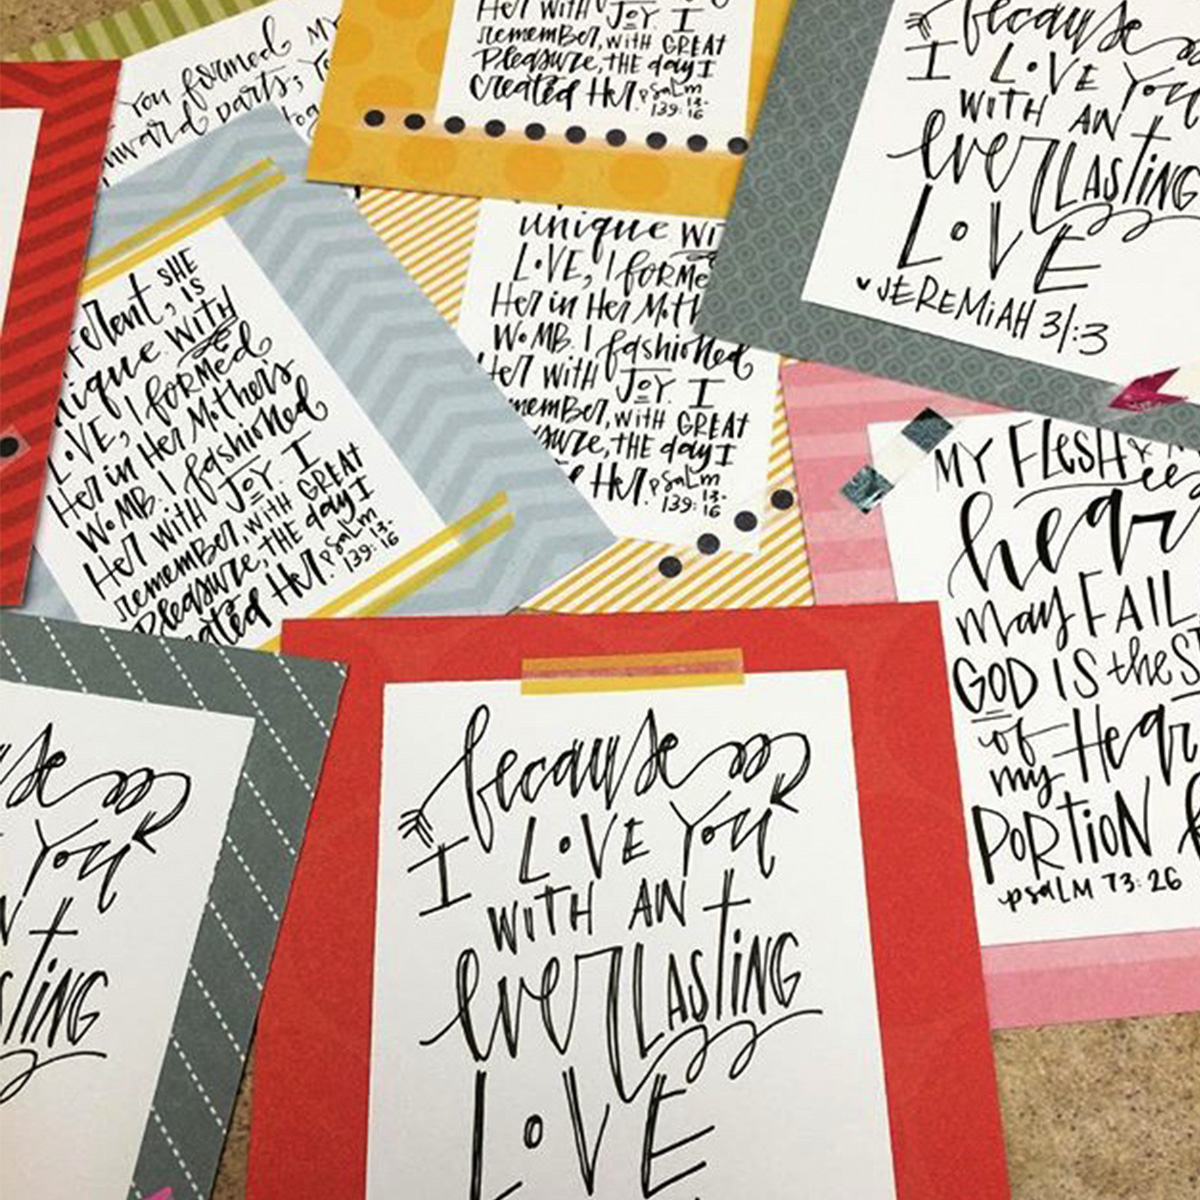 You formed MY
inward parts;
Her with JOY I
remember, with GREAT
Pleasure, THE day I
created Her. psalm
139: 13-
16
because
I LOVE You
WITH AN
everLASTING
LOVE
JEREMIAH 31:3
SHE
ferent, IS
nique WITH
LOVE, I FORMED
Her in Her Mothers
WOMB. I fashioned
Her with JOY. I
remember, with GREAT
Pleasure, THE day I
ated Her. psalm
139: 13-
16
unique WI
LOVE, I FORME
Her in Her Moth
WOMB. I fashioned
Her with JOY. I
member, with GREAT
sure, THE day I
d Her. psalm
139: 13-
16
MY FLESH &
hear
may FAIL
GOD IS the ST
of
my Hear
PORTION
psalm 73:26
se
You
N
sTING
because
I LOVE You
WITH AN
everLASTING
LOVE